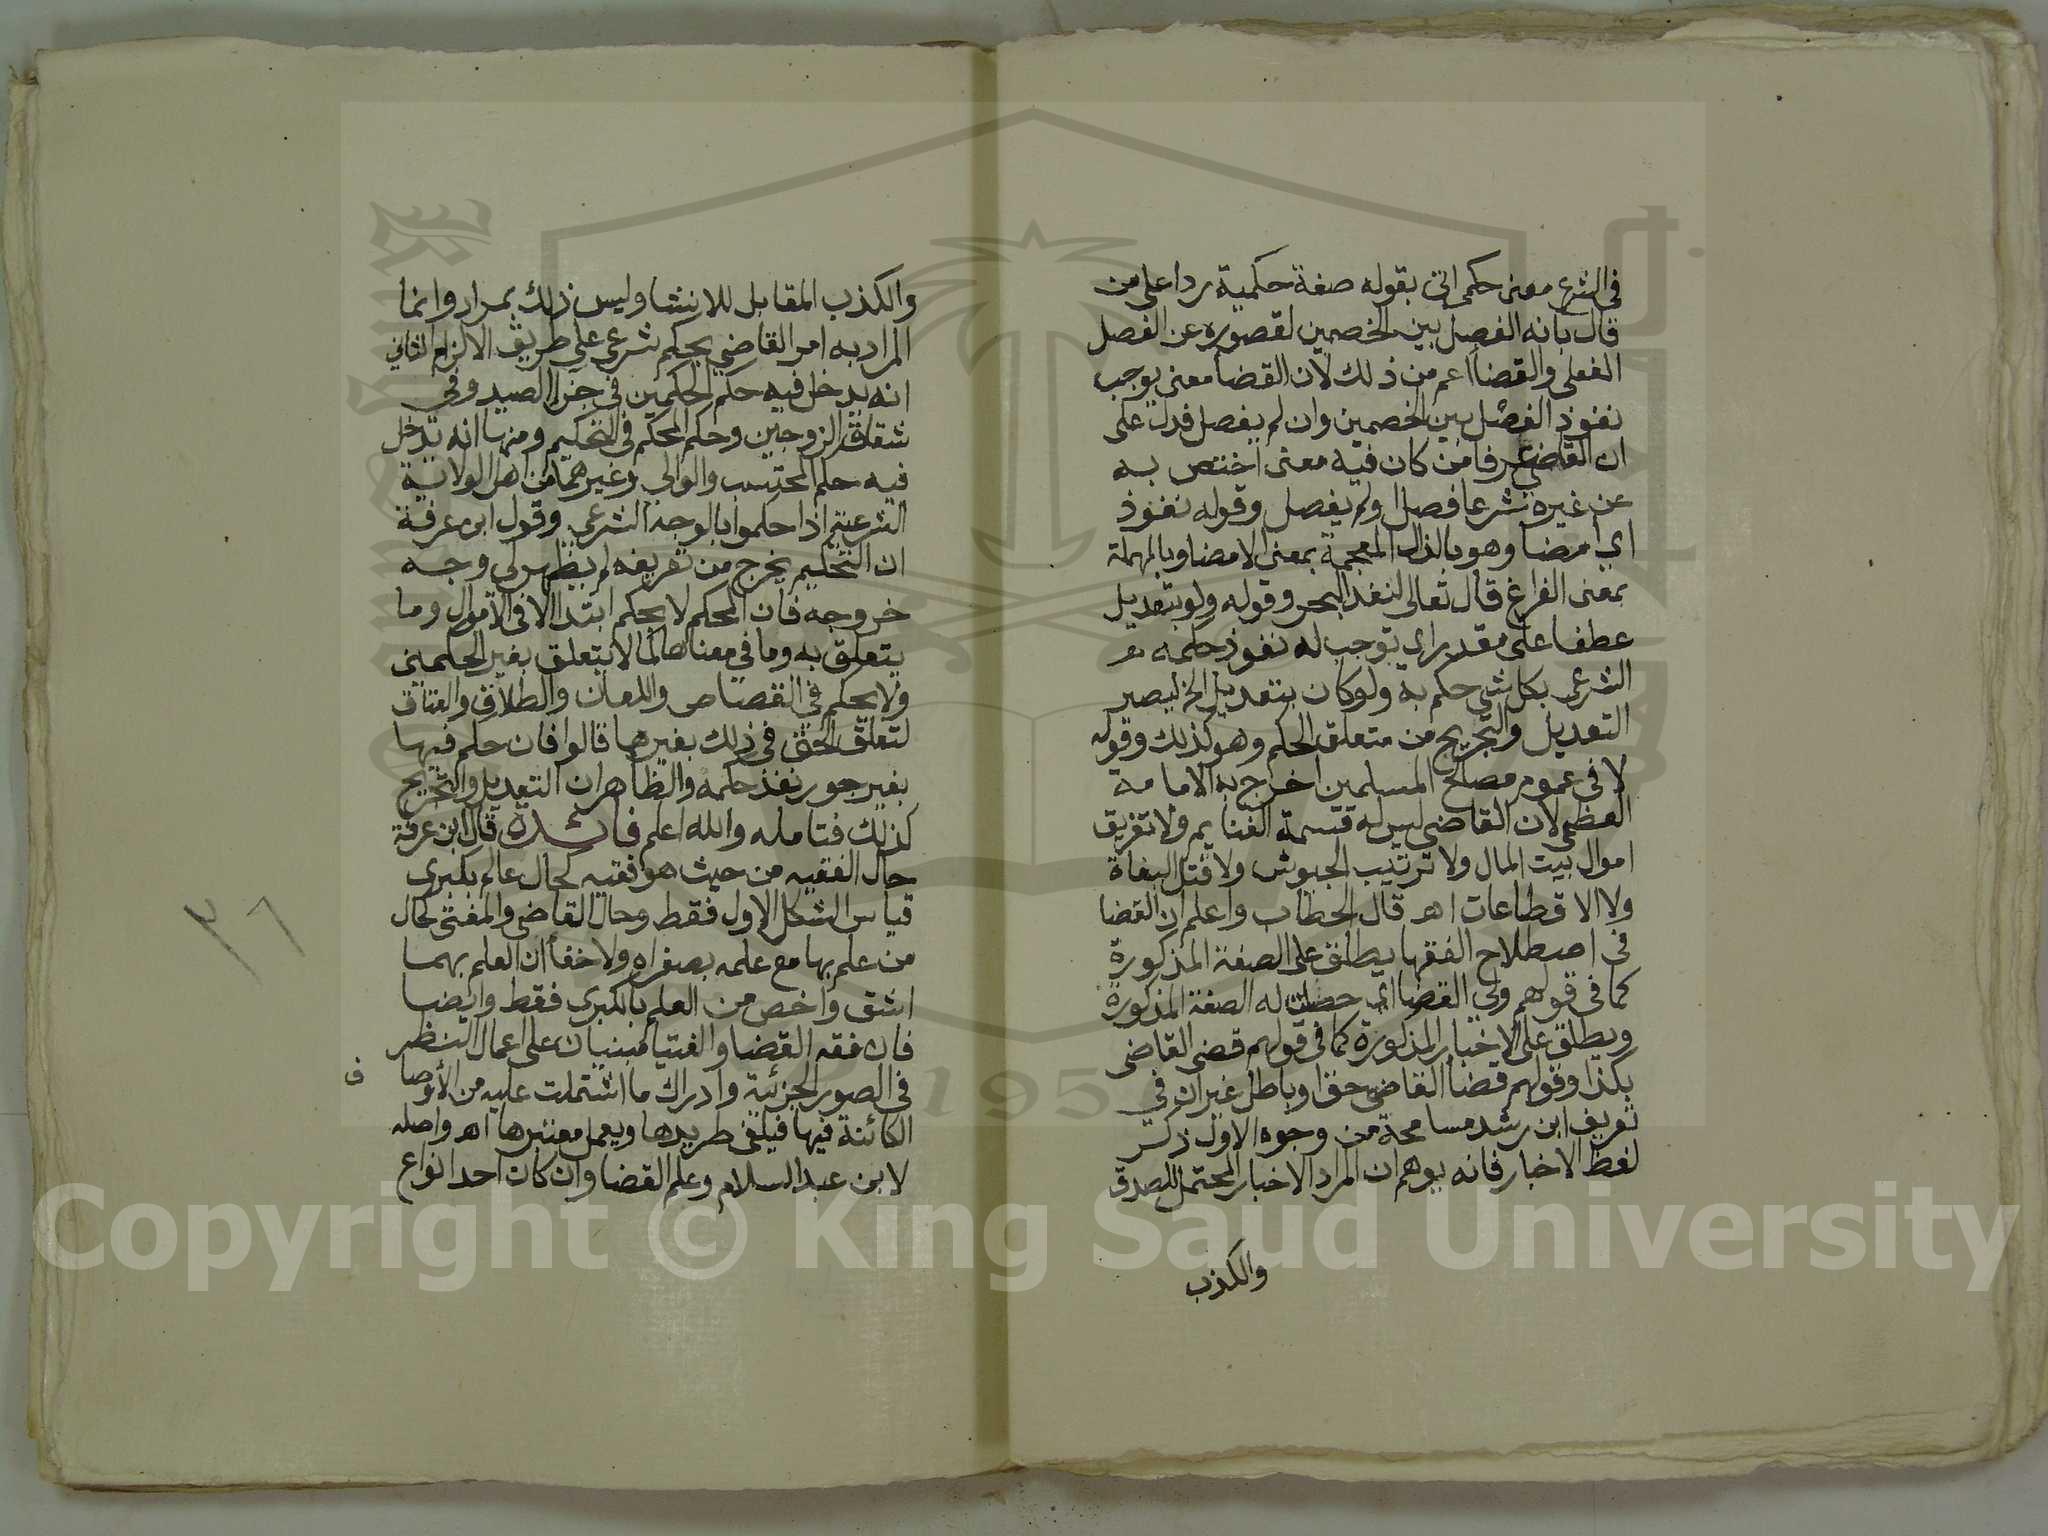 في الشرع معنى حكمي اتى بقوله صفة حكمية ردا على من
قال بانه الفصل بين الخصمين لقصوره عن الفصل
الفعلي والقضا اعم من ذلك لان القضا معنى يوجب
نفوذ الفصل بين الخصمين وان لم يفصل فدل على
ان القاضي عرفا من كان فيه معنى اختص به
عن غيره شرعا فصل ا ولم يفصل وقوله نفوذ
اي امضا وهو بالذال المعجمة بمعنى الامضا وبالمهملة
بمعنى الفراغ قال تعالى لنفد البحر وقوله ولو بتعديل
عطفا على مقدر اي توجب له نفوذ حكمه
الشرعي بكل شي حكم به ولو كان بتعديل الخ ليصير
التعديل والتجريح من متعلق الحكم وهو كذلك وقوله
لا في عموم مصلح المسلمين اخرج به الامامة
العظمى لان القاضي ليس له قسمة الغنايم ولا تفريق
اموال بيت المال ولا ترتيب الجيوش ولا قتل البغاة
ولا الاقطاعات اهـ قال الحطاب واعلم ان القضا
في اصطلاح الفقها يطلق على الصفة المذكورة
كما في قولهم ولي القضا اي حصلت له الصفة المذكورة
ويطلق على الاخبار المذكورة كما في قولهم قضى القاضي
بكذا وقولهم قضا القاضي حق او باطل غير ان في
تعريف ابن رشد مسامحة من وجوه الاول ذكر
لفظ الاخبار فانه يوهم ان المراد الاخبار المحتمل للصدق
والكذب
والكذب المقابل للانشا وليس ذلك بمراد وانما
المراد به امر القاضي بحكم شرعي على طريق الالزام الثاني
انه يدخل فيه حكم الحكمين في جزا الصيد وفي
شقاق الزوجين وحكم المحكم في التحكيم ومنها انه يدخل
فيه حكم المحتسب والوالي وغيرهما من اهل الولاية
الشرعية اذا حكموا بالوجه الشرعي وقول ابن عرفة
ان التحكيم يخرج من تعريفه لم يظهر لي وجه
خروجه فان المحكم لا يحكم ابتدا الا في الاموال وما
يتعلق به وما في معناها مما لا يتعلق بغير الحكمين
ولا يحكم في القصاص واللعان والطلاق والعتاق
لتعلق الحق في ذلك بغيرهما قالوا فان حكم فيها
بغير جور نفذ حكمه والظاهر ان التعديل والتجريح
كذلك فتامله والله اعلم فائدة قال ابن عرفة
حال الفقيه من حيث هو فقيه كحال عالم بكبرى
قياس الشكل الاول فقط وحال القاضي والمفتي كحال
من علم بها مع علمه بصغراه ولا خفا ان العلم بهما
اشق واخص من العلم بالكبرى فقط وايضا
فان فقه القضا والفتيا مبنيان على اعمال النظر
في الصور الجزئية وادراك ما اشتملت عليه من الاوصا
ف
الكائنة فيها فيلغى طريدها ويعمل معتبرها اهـ واصله
لابن عبد السلام وعلم القضا وان كان احد انواع
Copyright © King Saud University
195